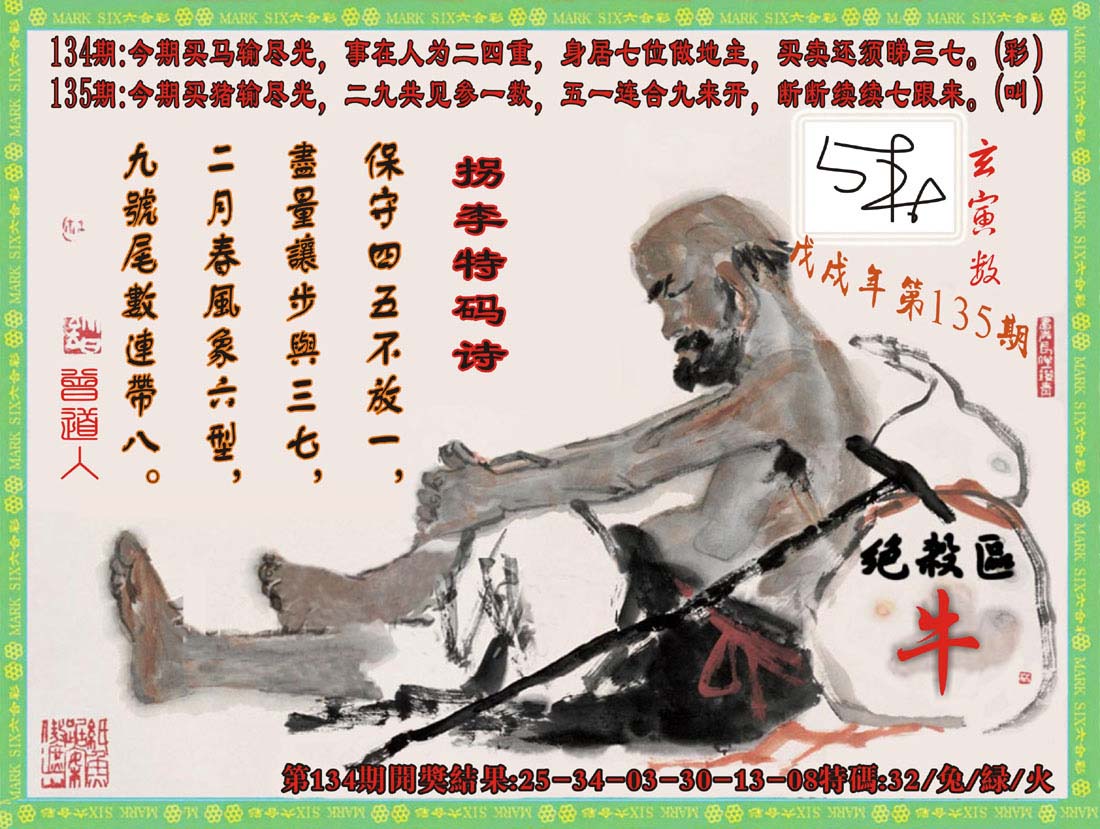 MARK SIX六合彩
134期:今期买马输尽光，事在人为二四重，身居七位做地主，买卖还须睇三七。(彩)
135期:今期买猪输尽光，二九共见参一数，五一连合九来开，断断续续七跟来。(叫)
玄寅数
戊戌年第135期
拐李特码诗
保守四五不放一，
盡量讓步與三七，
二月春風象六型，
九號尾數連帶八。
曾道人
绝殺區
牛
第134期開獎結果:25-34-03-30-13-08特碼:32/兔/緑/火